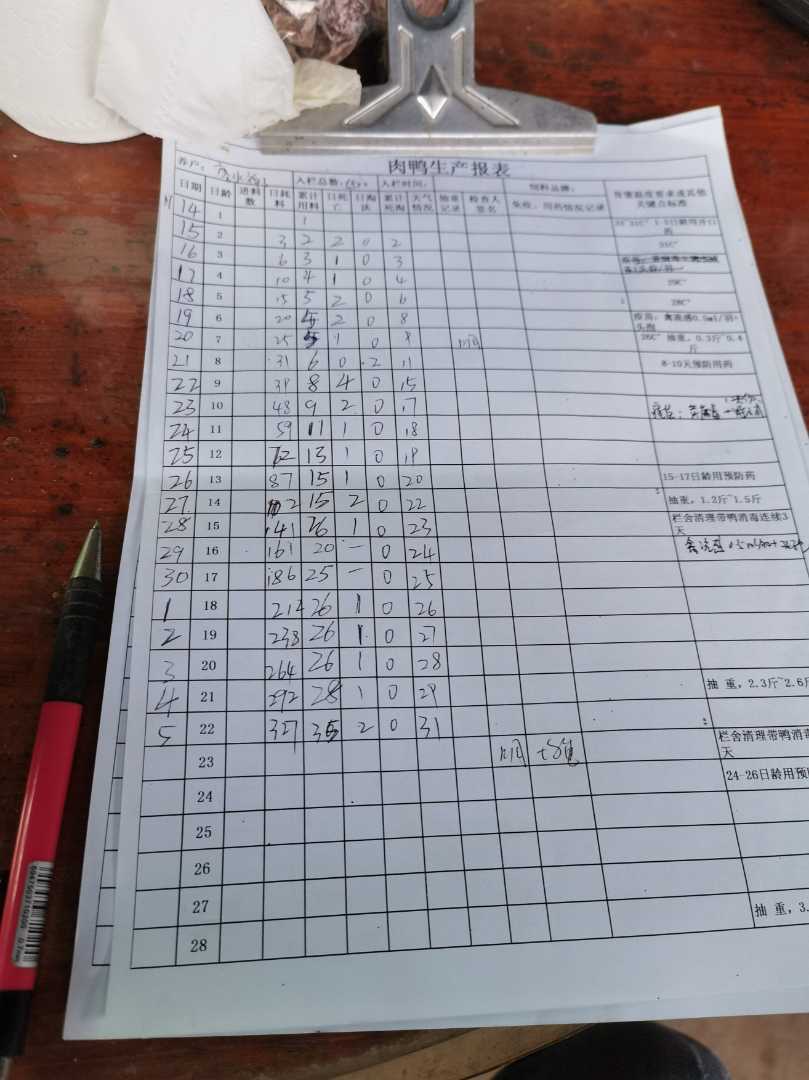 肉鸭生产报表
养户: 入栏总数: 入栏时间: 饲料品牌:
日期 日龄 进料数 日耗料 累计用料 日死亡 日淘汰 累计死淘 天气情况 抽重记录 检查人签名 免疫、用药情况记录 育雏温度要求或其他关键点标准
14 1 1
15 2 3 2 2 0 2 31C°
16 3 6 3 1 0 3
17 4 10 4 1 0 4 29C°
18 5 15 5 2 0 6 28C°
19 6 20 5 2 0 8 疫苗: 禽流感0.5ml/羽+头孢
20 7 25 5 1 0 8 26C° 抽重, 0.3斤~0.4斤
21 8 31 6 0 2 11 8-10天预防用药
22 9 39 8 4 0 15
23 10 48 9 2 0 17
24 11 59 11 1 0 18
25 12 72 13 1 0 19
26 13 87 15 1 0 20 15-17日龄用预防药
27 14 102 15 2 0 22 抽重, 1.2斤~1.5斤
28 15 141 26 1 0 23 栏舍清理带鸭消毒连续3天
29 16 161 20 一 0 24
30 17 186 25 一 0 25
1 18 212 26 1 0 26
2 19 238 26 1 0 27
3 20 264 26 1 0 28
4 21 292 28 1 0 29 抽 重, 2.3斤~2.6斤
5 22 327 35 2 0 31
23 栏舍清理带鸭消毒 天
24 24-26日龄用预
25
26
27 抽 重, 3.
28